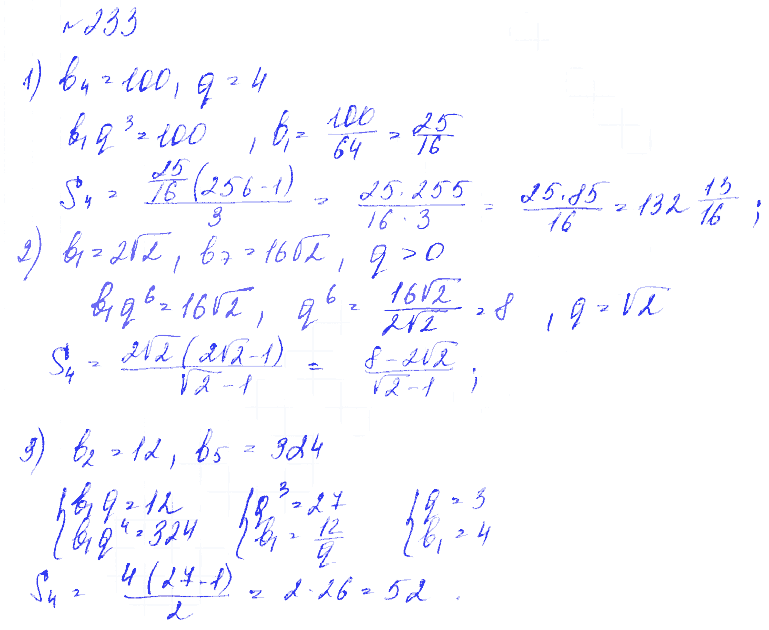 №233
1) b₄ = 100, q = 4
b₁q³ = 100, b₁ = 100/64 = 25/16
S₄ = 25/16 (256-1) / 3 = 25·255 / 16·3 = 25·85 / 16 = 132 13/16 ;
2) b₁ = 2√2, b₇ = 16√2, q > 0
b₁q⁶ = 16√2, q⁶ = 16√2 / 2√2 = 8, q = √2
S₄ = 2√2 (2√2-1) / √2-1 = 8-2√2 / √2-1 ;
3) b₂ = 12, b₅ = 324
{ b₁q = 12 { q³ = 27 { q = 3
{ b₁q⁴ = 324 { b₁ = 12/q { b₁ = 4
S₄ = 4 (27-1) / 2 = 2·26 = 52 .